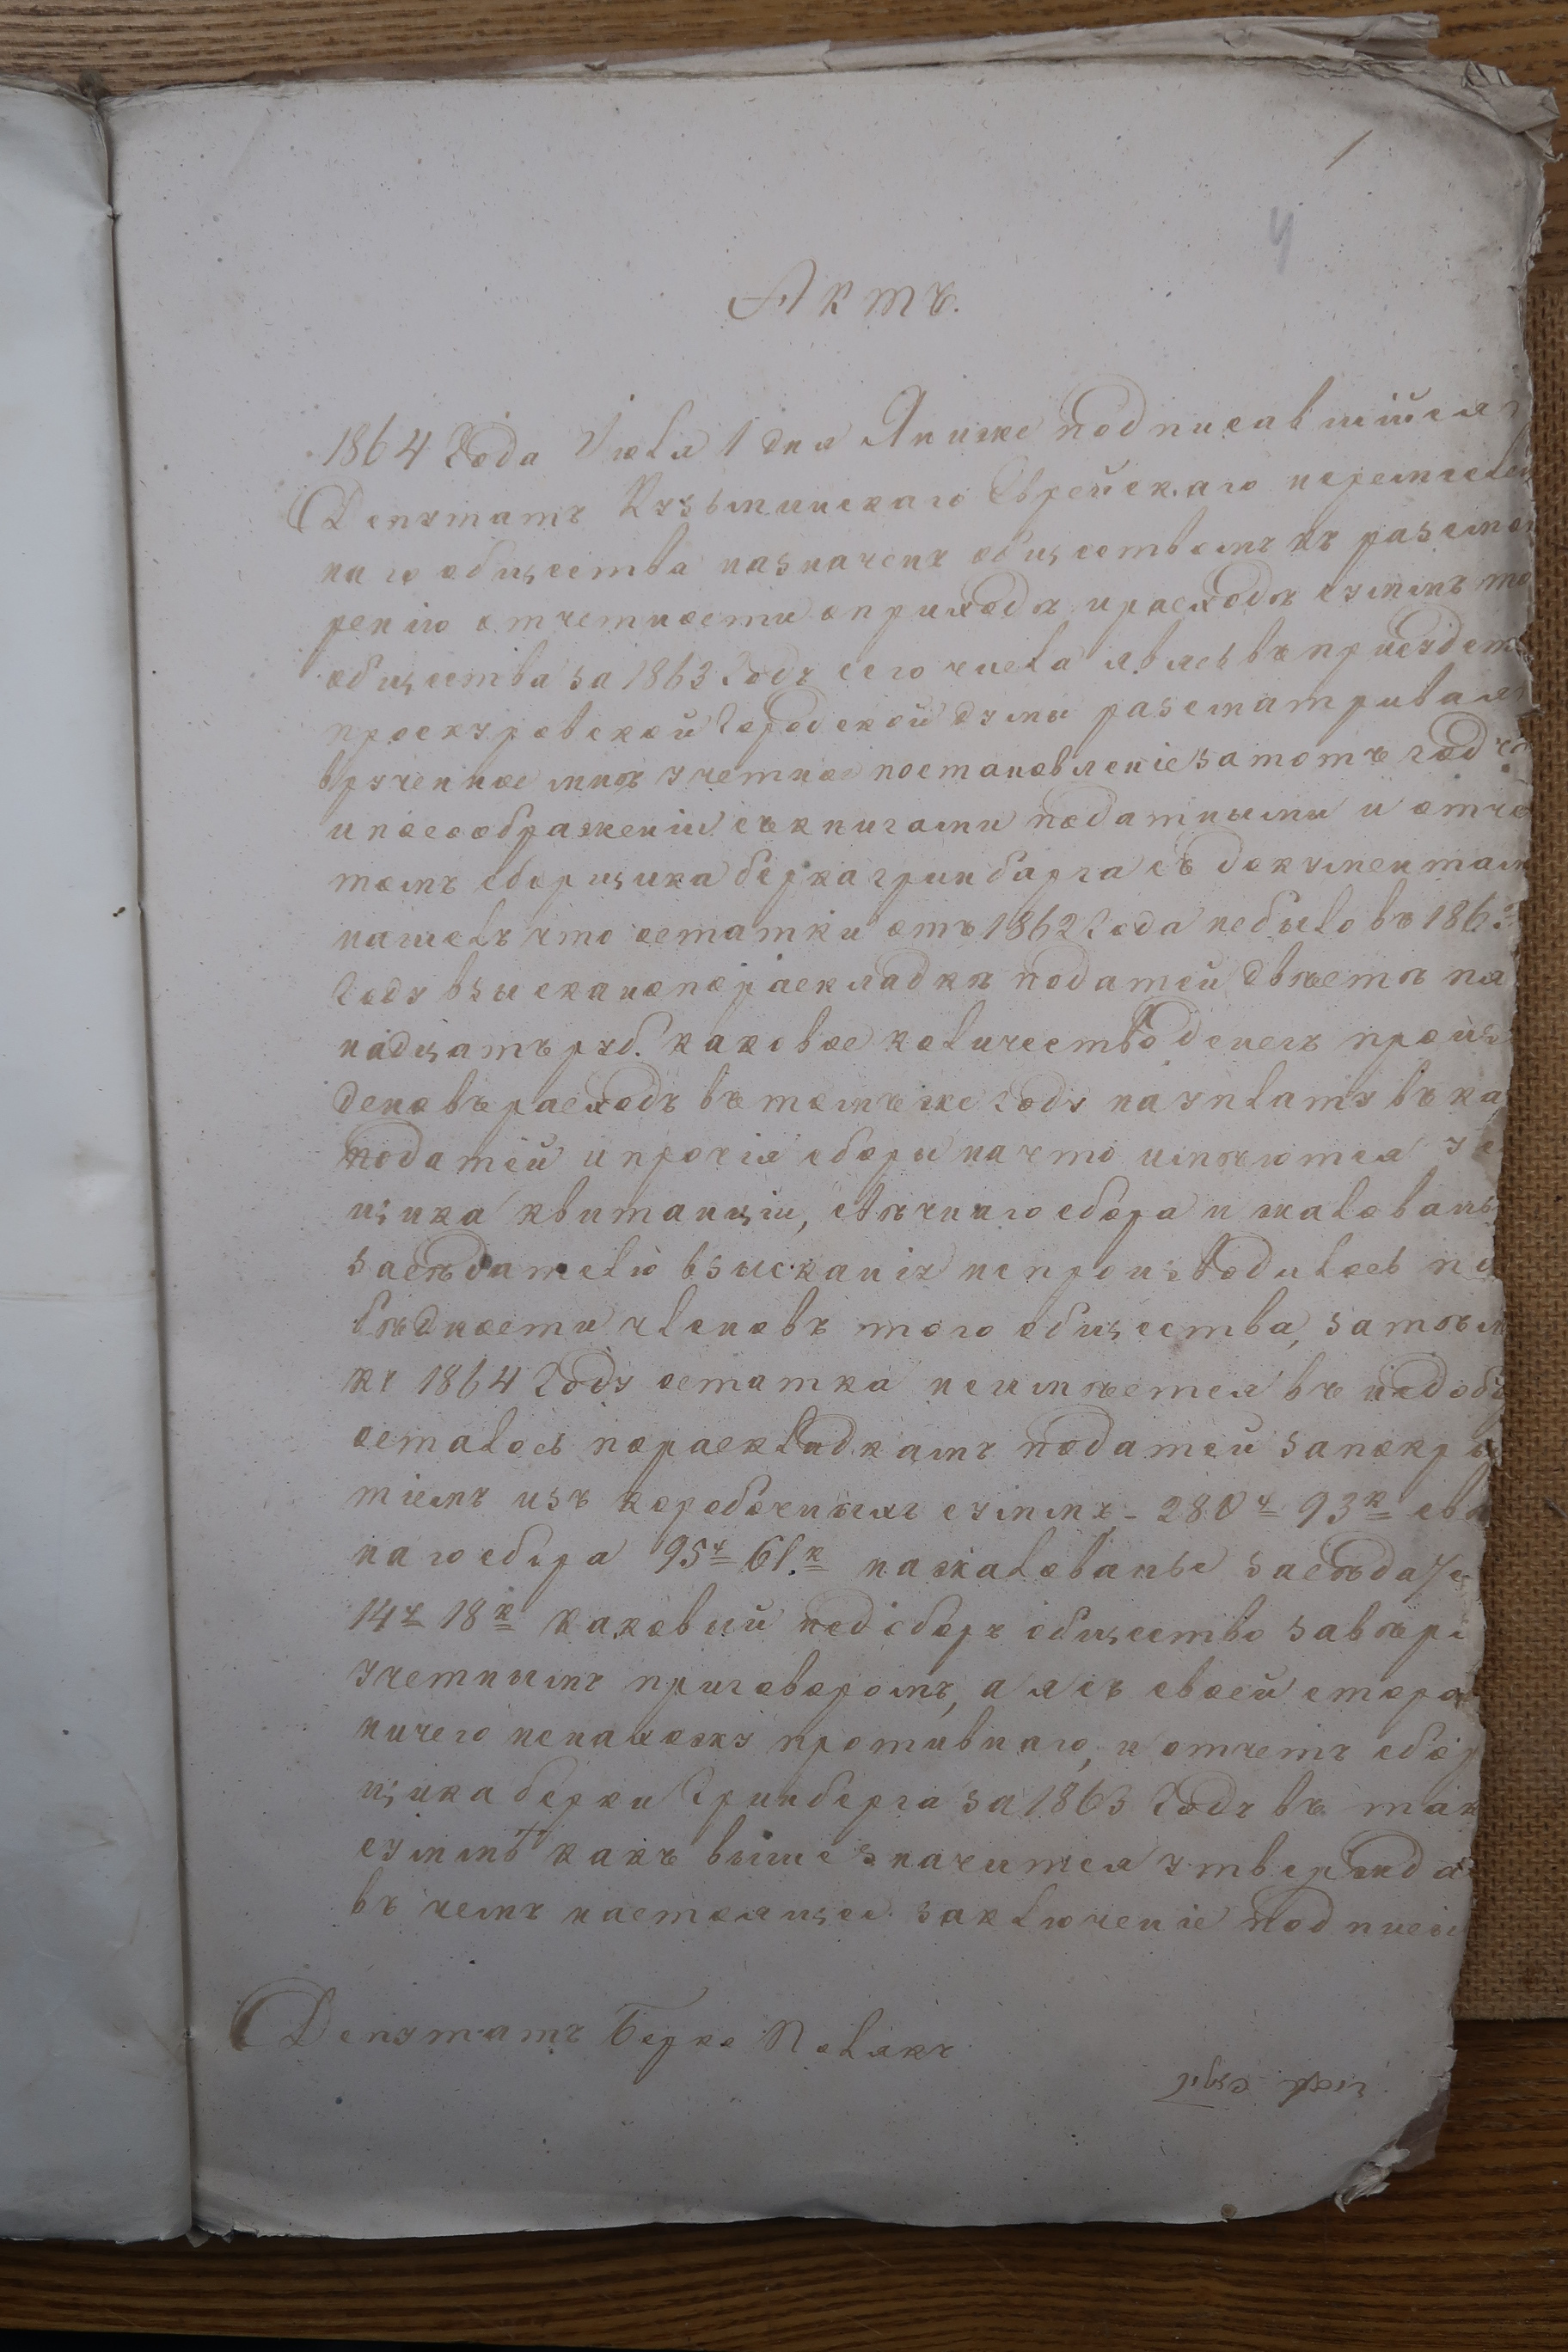 1
4
Актъ.
1864 Года Іюля 1 дня Я ниже подписавшійся
Депутатъ Кузьминскаго Еврейскаго
наго общества назначенъ обществомъ къ разсмот
ренію отчетности о приходѣ и расходѣ суммъ то
общества за 1863 Годъ сего числа явясь въ
проскуровской Городской думы разсматривалъ
врученное мнѣ учетное постановленіе за тотъ годъ
и по соображеніи съ книгами податными и отче
томъ сборщика берка гринбарга съ документам
нашелъ что остатки отъ 1862 Года небыло въ 1863
Году взыскано по раскладкѣ податей двѣстѣ пя
надцатъ руб. каковое количество денегъ произ
дено въ расходъ въ томъ же Году на уплату въ ка
податей и прочія сборы на что имѣются у с
щика квитанціи, свѣчнаго сбора и жалованья
засѣдателю взысканіе не производилось по
бѣдности членовъ того общества, затѣм
къ 1864 Году остатка не имѣется въ недобо
осталось по раскладкамъ податей за покры
тіемъ изъ коробочныхъ суммъ - 280 р 93 к свѣ
наго сбора 95 р 61. к на жалованье засѣдате
14 р 18 к каковый недоборъ общество завѣри
учетнымъ приговоромъ, а я съ своей сторо
ничего ненахожу противнаго, и отчетъ сбор
щика берки Гринберга за 1863 Годъ въ так
суммѣ какъ выше значится утвержда
въ чемъ настоящее заключеніе подписы
Депутатъ Берко Полякъ